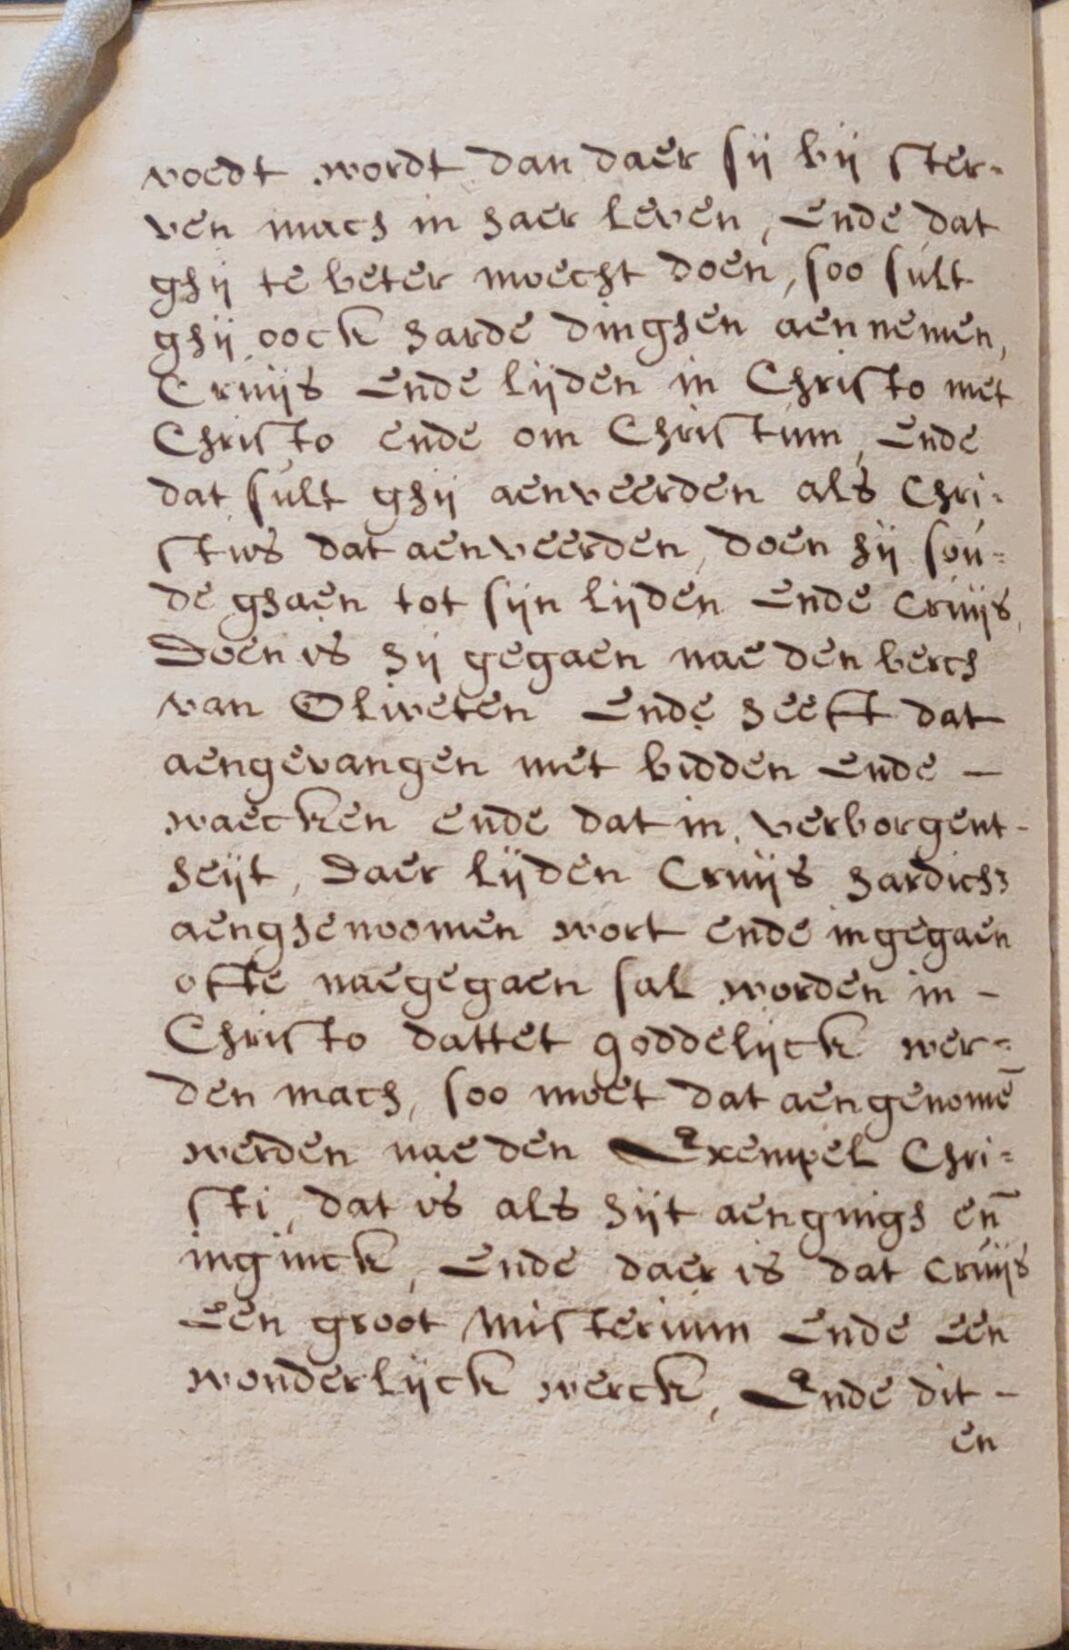 voedt wordt dan daer sij bij ster-
ven mach in haer leven, Ende dat
ghij te beter moecht doen, soo sult
ghij oock harde dinghen aen nemen,
Cruijs Ende lijden in Christo met
Christo ende om Christum, Ende
dat sult ghij aenveerden als Chri-
stus dat aenveerden, doen hij sou-
de ghaen tot sijn lijden Ende Cruijs,
Doen is hij gegaen nae den berch
van Oliveten Ende heeft dat
aengevangen met bidden Ende —
waecken ende dat in verborgent-
heijt, Daer lijden Cruijs hardich:
aenghenoomen wort ende ingegaen
ofte naegegaen sal worden in -
Christo dattet goddelijck wer-
den mach, soo moet dat aengenomē
werden nae den Exempel Chri-
sti, dat is als hijt aengingh en̄
inginck, Ende daer is dat Cruijs
Een groot Misterium Ende Een
wonderlijck werck, Ende dit -
en